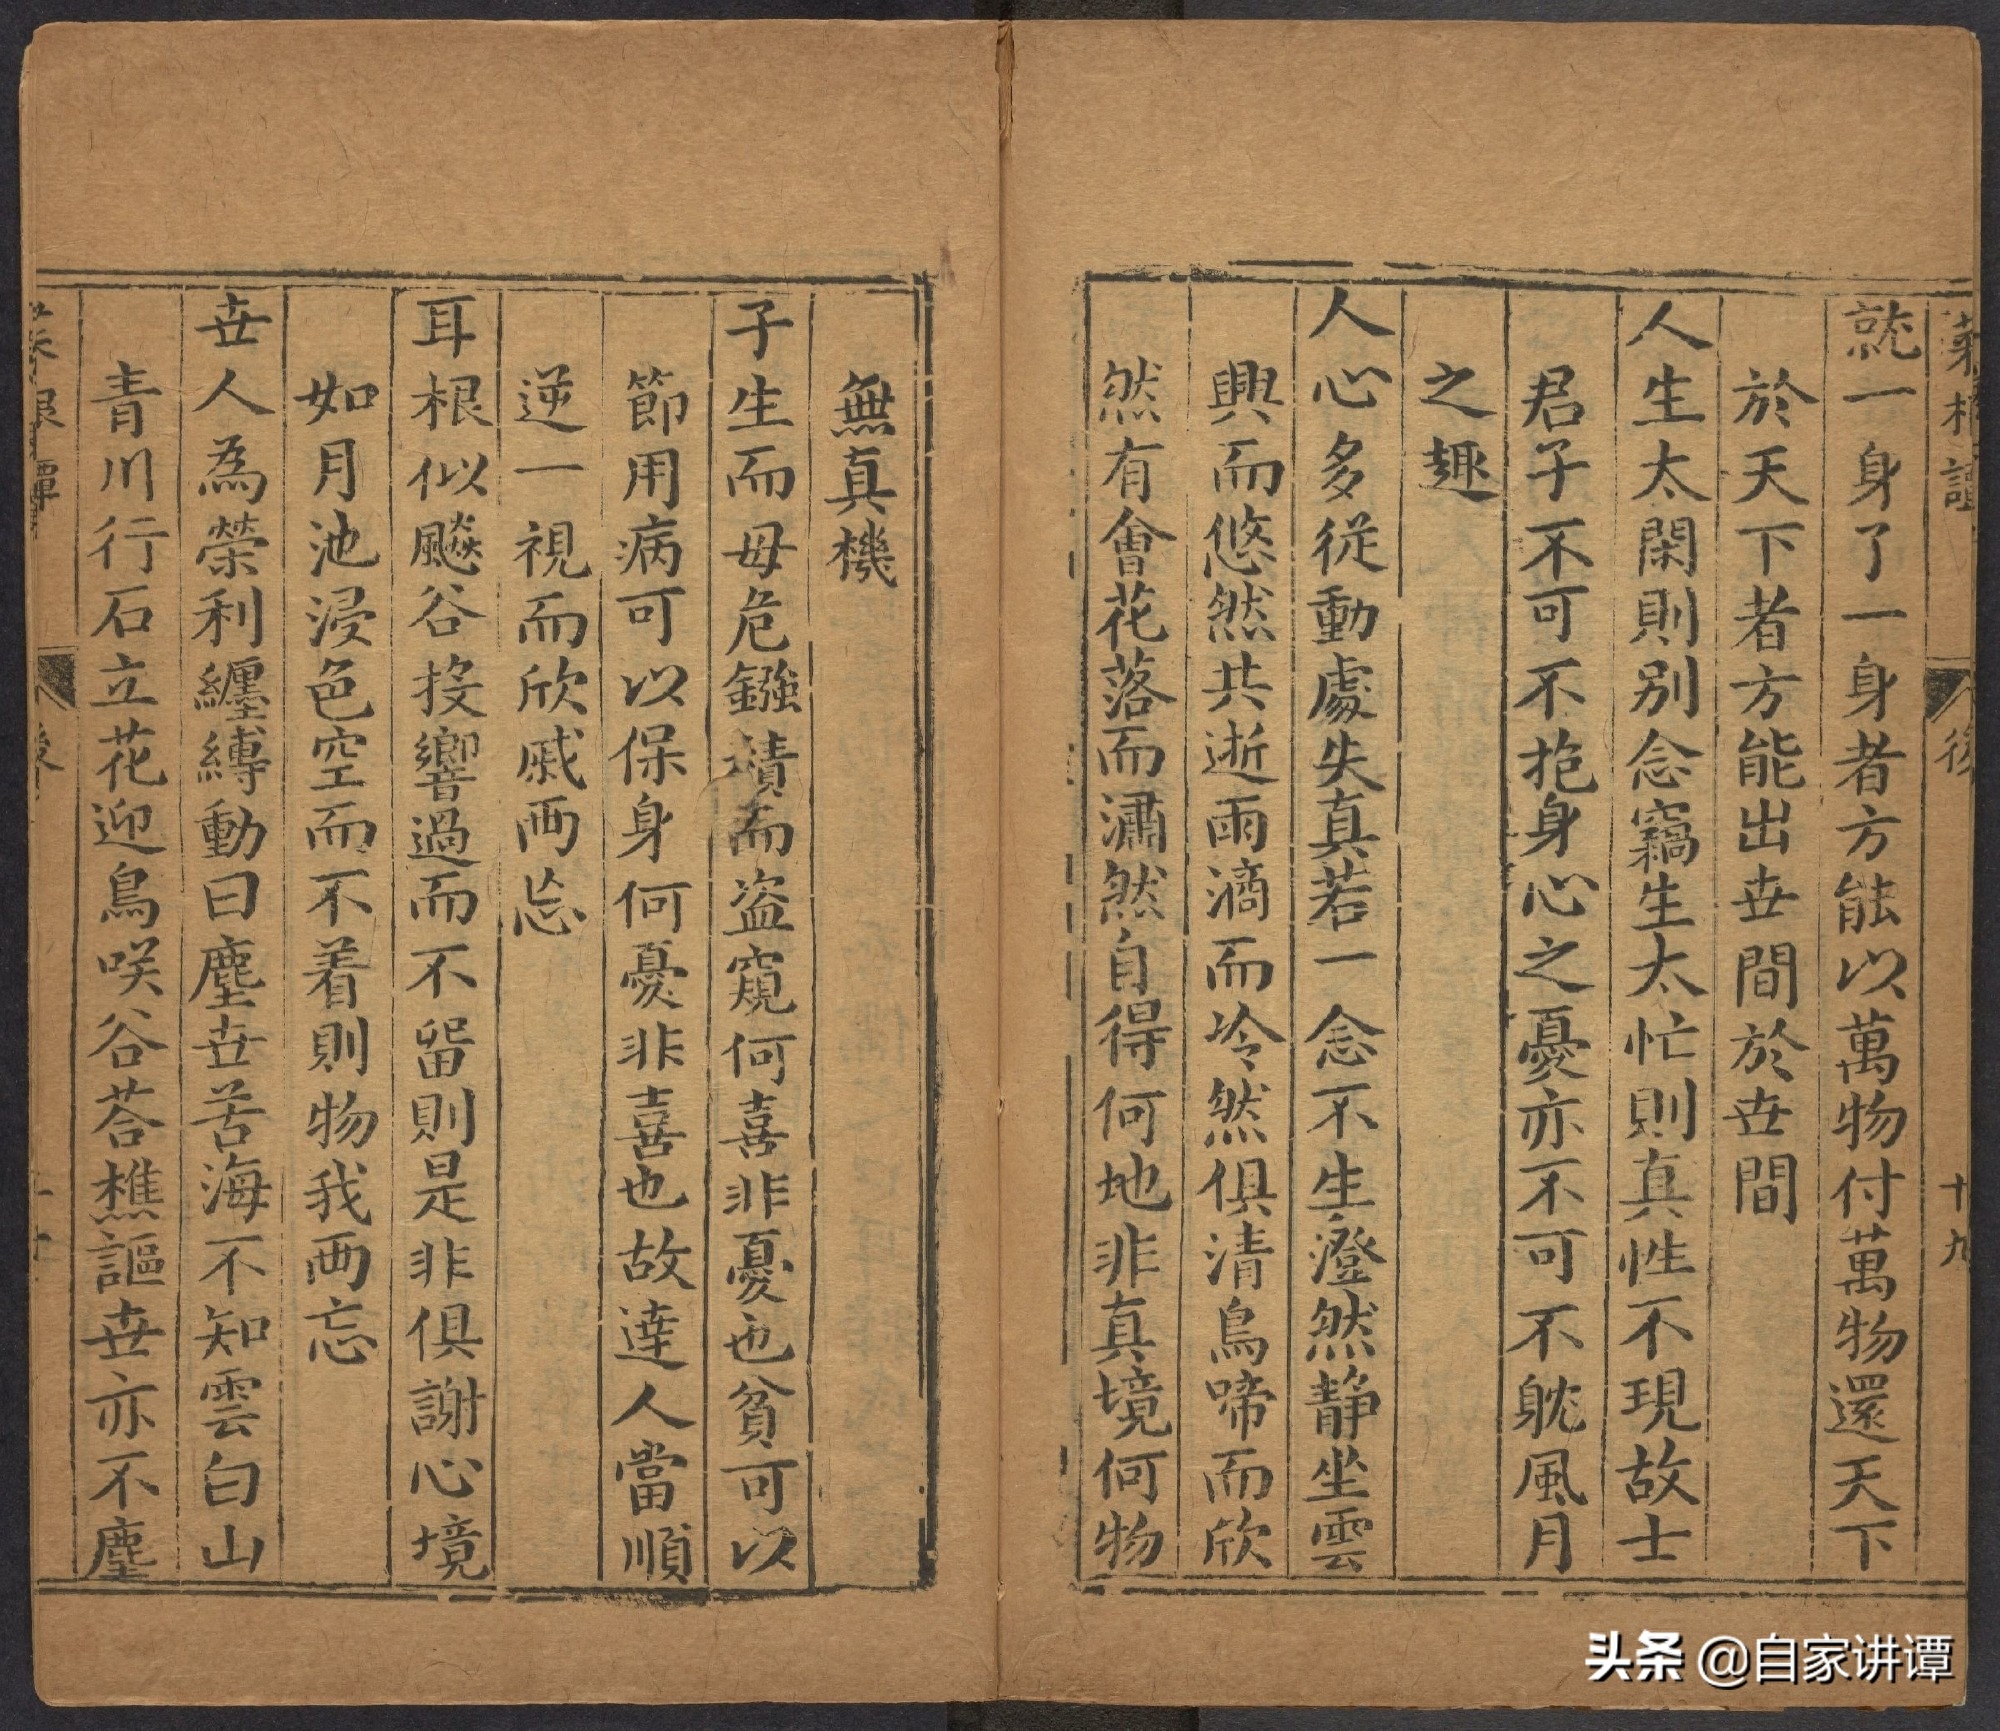 菜根譚 後 十九
就一身了一身者方能以萬物付萬物還天下
於天下者方能出世間於世間
人生太閑則别念竊生太忙則真性不現故士
君子不可不抱身心之憂亦不可不躭風月
之趣
人心多従動處失真若一念不生澄然静坐雲
興而悠然共逝雨滴而冷然俱清鳥啼而欣
然有會花落而瀟然自得何地非真境何物
無真機
子生而母危鏹積而盗窺何喜非憂也貧可以
節用病可以保身何憂非喜也故達人當順
逆一視而欣戚兩忘
耳根似飇谷投響過而不留則是非俱謝心境
如月池浸色空而不着則物我兩忘
世人為榮利纏縛動曰塵世苦海不知雲白山
青川行石立花迎鳥咲谷荅樵謳世亦不塵
菜根譚 後
头条 @自家讲谭